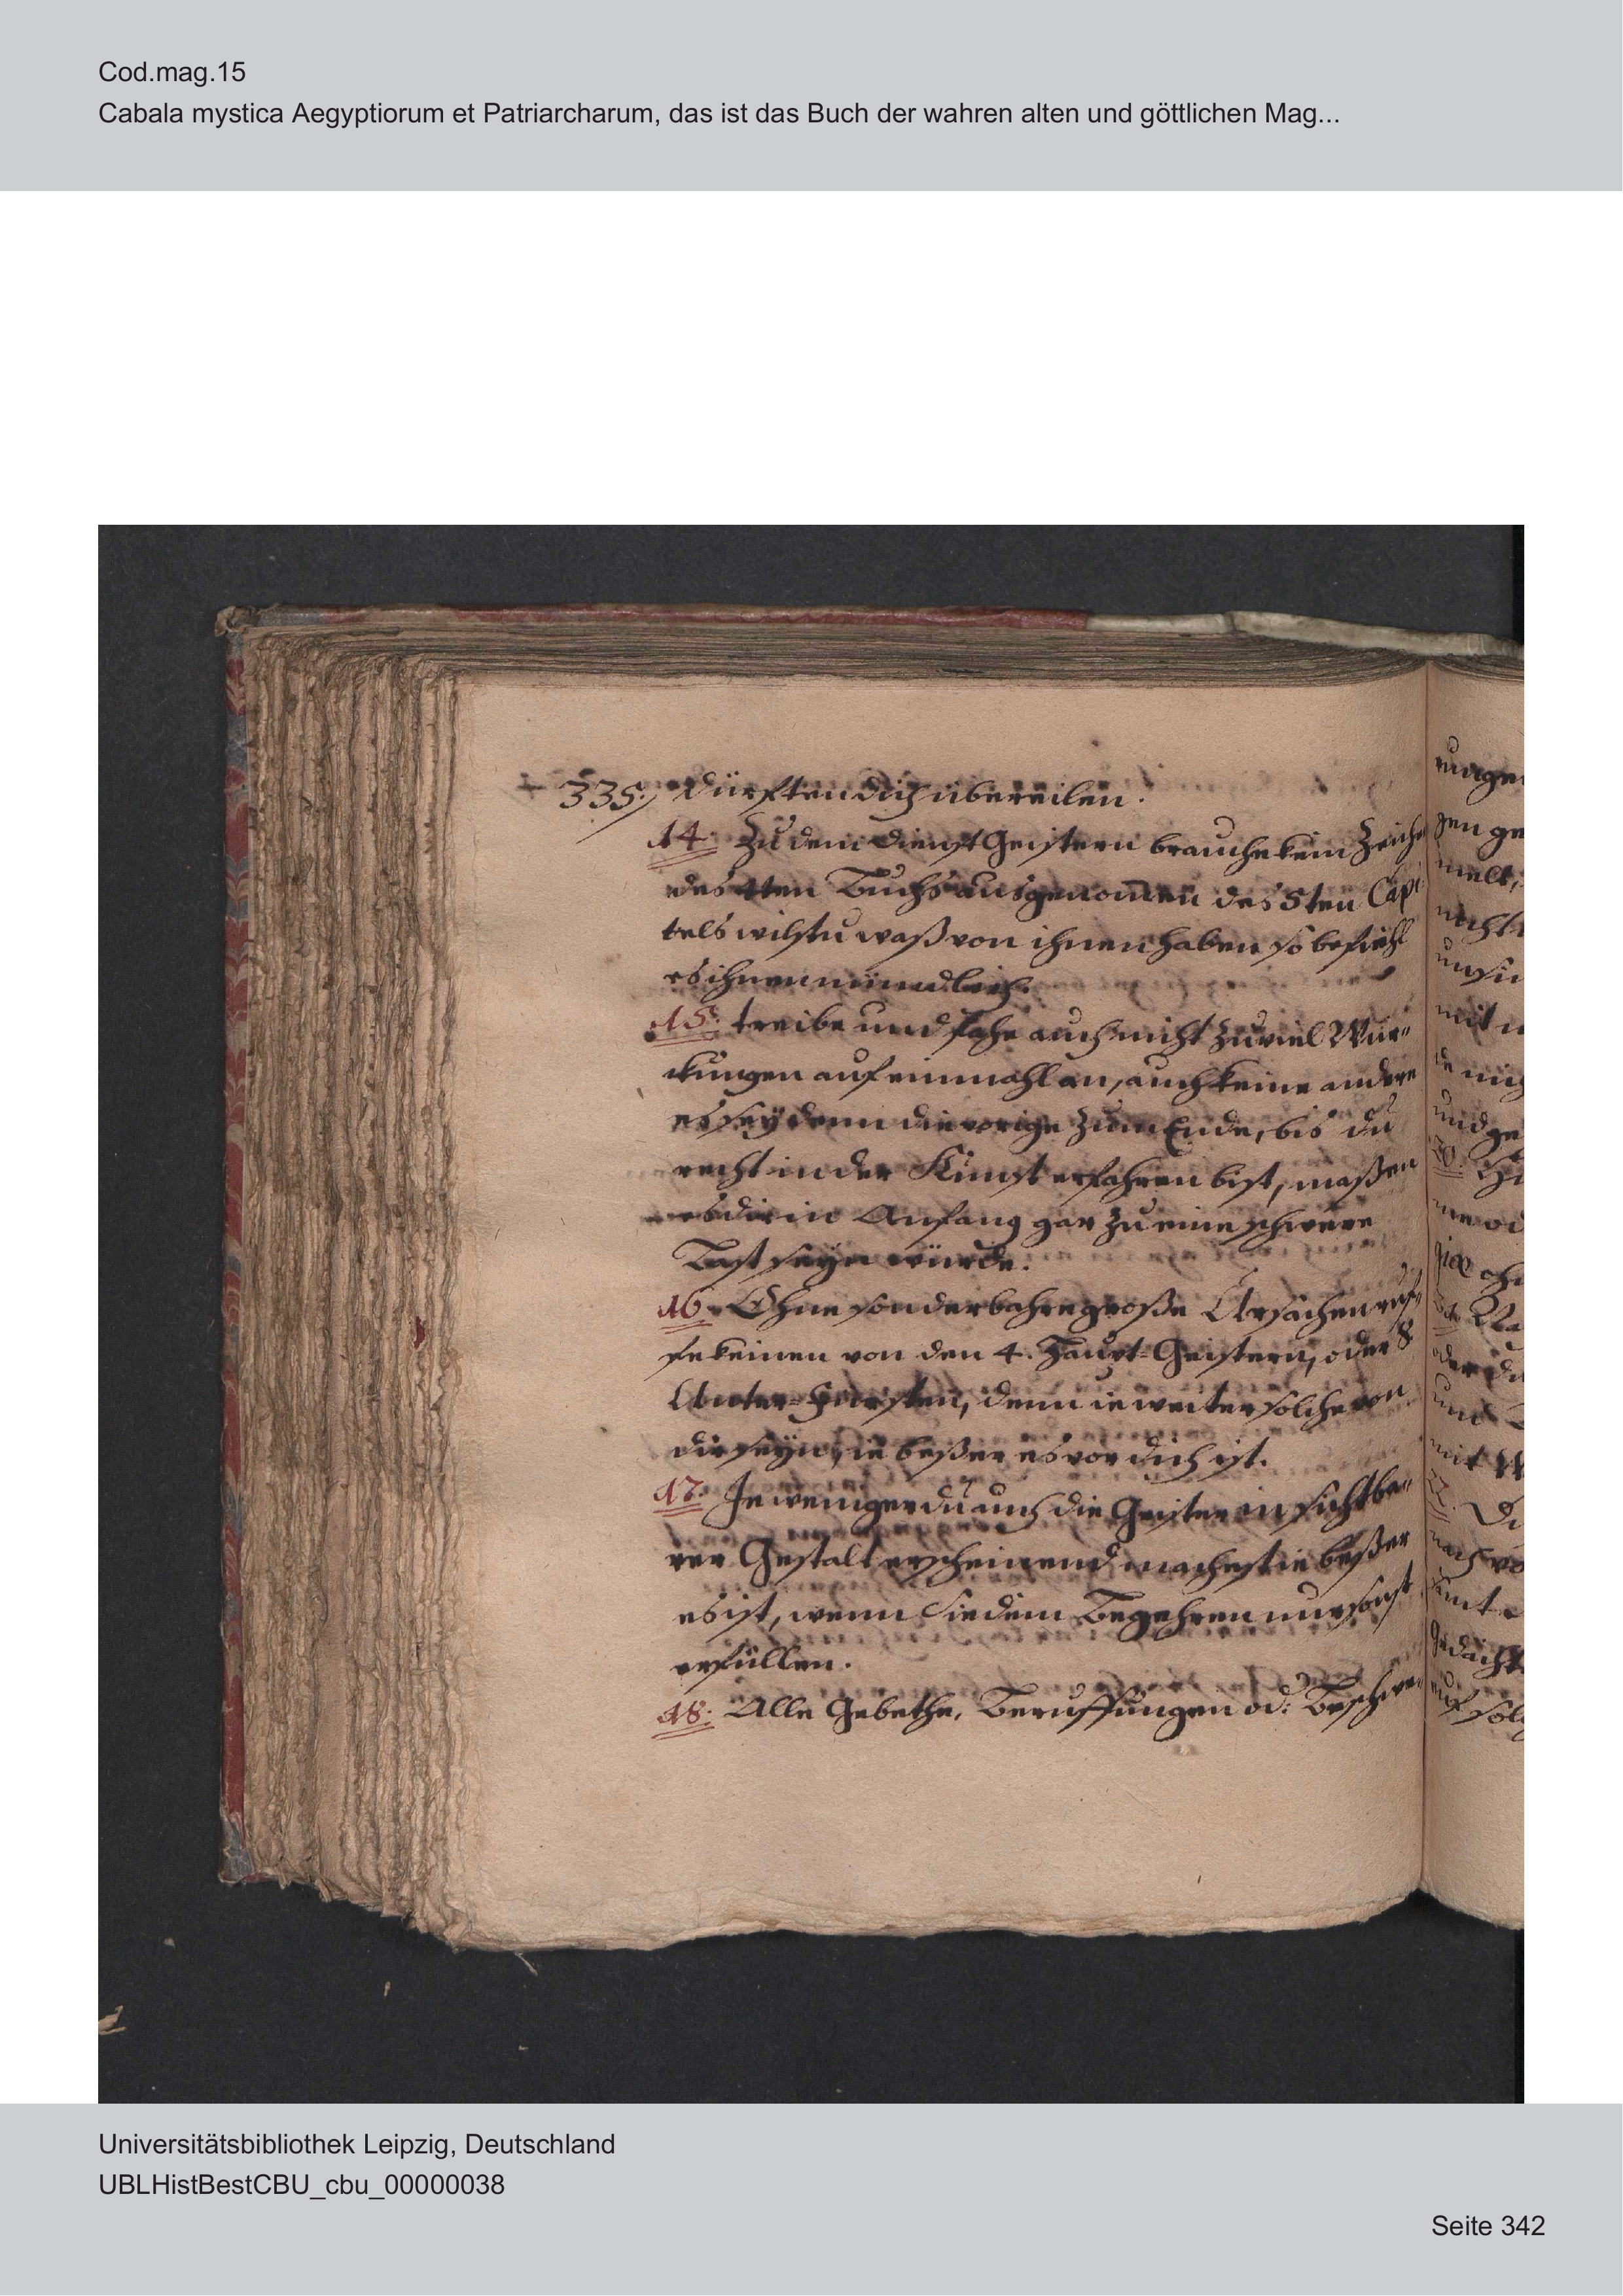 Cod.mag.15
Cabala mystica Aegyptiorum et Patriarcharum, das ist das Buch der wahren alten und göttlichen Mag...
335. dürfften dich übereilen.
14. Zu dem Dienst Geistern brauche kein Zeiche
des 4ten Buchs ausgenomen des 5ten Capi
tels wilstu waß von ihnen haben so befiehl
es ihnen mündlich.
15. treibe und fahe auch nicht zu viel Wür-
ckungen auf einmahl an, auch keine andere
es seÿ denn die vorige zum Ende, bis du
recht in der Kunst erfahren bist, maßen
es dir in Anfang gar zu eine schwere
Last seÿn würde.
16. Ohne sonderbahre große Ursachen ruf-
fe keinen von den 4. Haupt-Geistern, oder 8
Unter-Fürsten, denn ie weiter solche von
dir seÿn, ie beßer es vor dich ist.
17. Je weniger du auch die Geister in sichtba-
rer Gestalt erscheinend machest ie beßer
es ist, wenn sie dein Begehren nur sonst
erfüllen.
18. Alle Gebethe, Beruffungen od: Beschwe-
Universitätsbibliothek Leipzig, Deutschland
UBLHistBestCBU_cbu_00000038
Seite 342